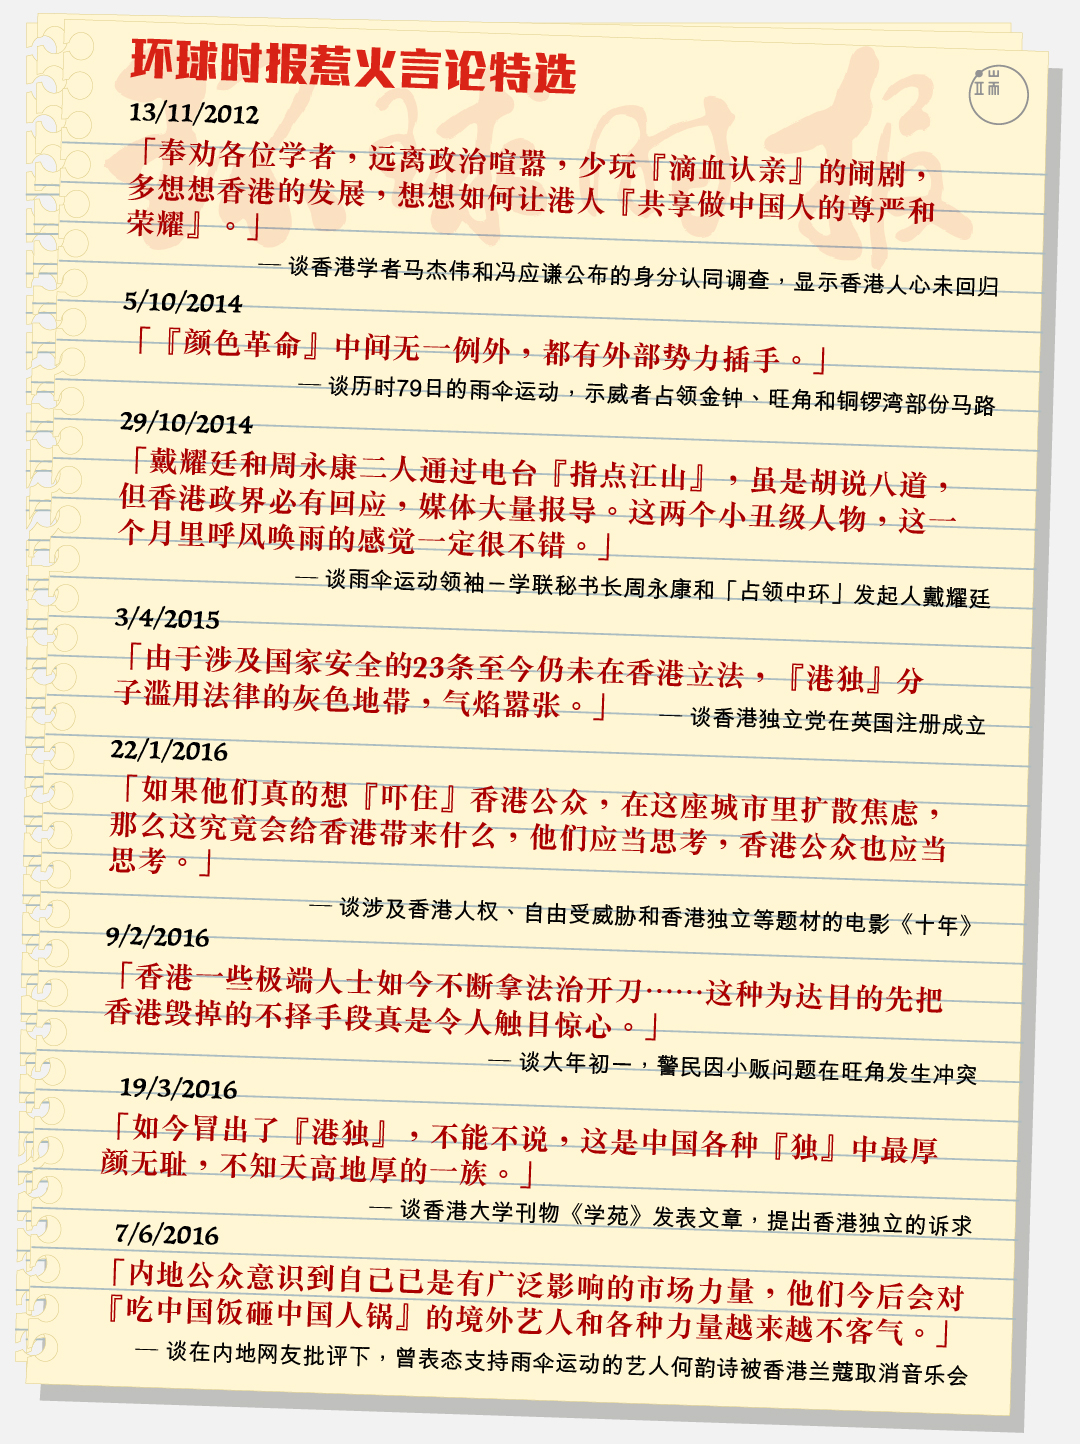 环球时报惹火言论特选
端
13/11/2012
「奉劝各位学者，远离政治喧嚣，少玩『滴血认亲』的闹剧，
多想想香港的发展，想想如何让港人『共享做中国人的尊严和
荣耀』。」
— 谈香港学者马杰伟和冯应谦公布的身分认同调查，显示香港人心未回归
5/10/2014
「『颜色革命』中间无一例外，都有外部势力插手。」
— 谈历时79日的雨伞运动，示威者占领金钟、旺角和铜锣湾部份马路
29/10/2014
「戴耀廷和周永康二人通过电台『指点江山』，虽是胡说八道，
但香港政界必有回应，媒体大量报导。这两个小丑级人物，这一
个月里呼风唤雨的感觉一定很不错。」
— 谈雨伞运动领袖－学联秘书长周永康和「占领中环」发起人戴耀廷
3/4/2015
「由于涉及国家安全的23条至今仍未在香港立法，『港独』分
子滥用法律的灰色地带，气焰嚣张。」 — 谈香港独立党在英国注册成立
22/1/2016
「如果他们真的想『吓住』香港公众，在这座城市里扩散焦虑，
那么这究竟会给香港带来什么，他们应当思考，香港公众也应当
思考。」
— 谈涉及香港人权、自由受威胁和香港独立等题材的电影《十年》
9/2/2016
「香港一些极端人士如今不断拿法治开刀……这种为达目的先把
香港毁掉的不择手段真是令人触目惊心。」
— 谈大年初一，警民因小贩问题在旺角发生冲突
19/3/2016
「如今冒出了『港独』，不能不说，这是中国各种『独』中最厚
颜无耻，不知天高地厚的一族。」
— 谈香港大学刊物《学苑》发表文章，提出香港独立的诉求
7/6/2016
「内地公众意识到自己已是有广泛影响的市场力量，他们今后会对
『吃中国饭砸中国人锅』的境外艺人和各种力量越来越不客气。」
— 谈在内地网友批评下，曾表态支持雨伞运动的艺人何韵诗被香港兰蔻取消音乐会